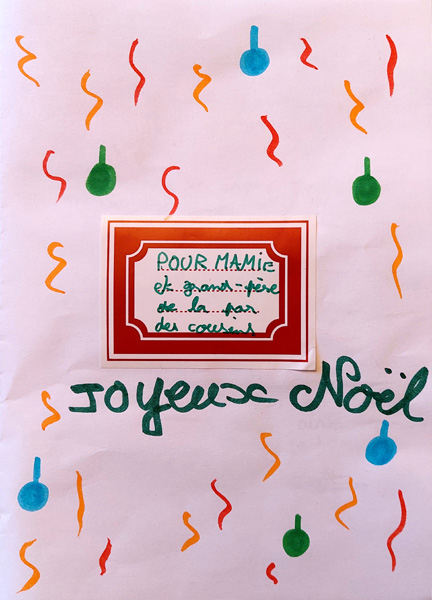 POUR MAMIE
et grand-père
de la par
des cousins
JOYEUX Noël